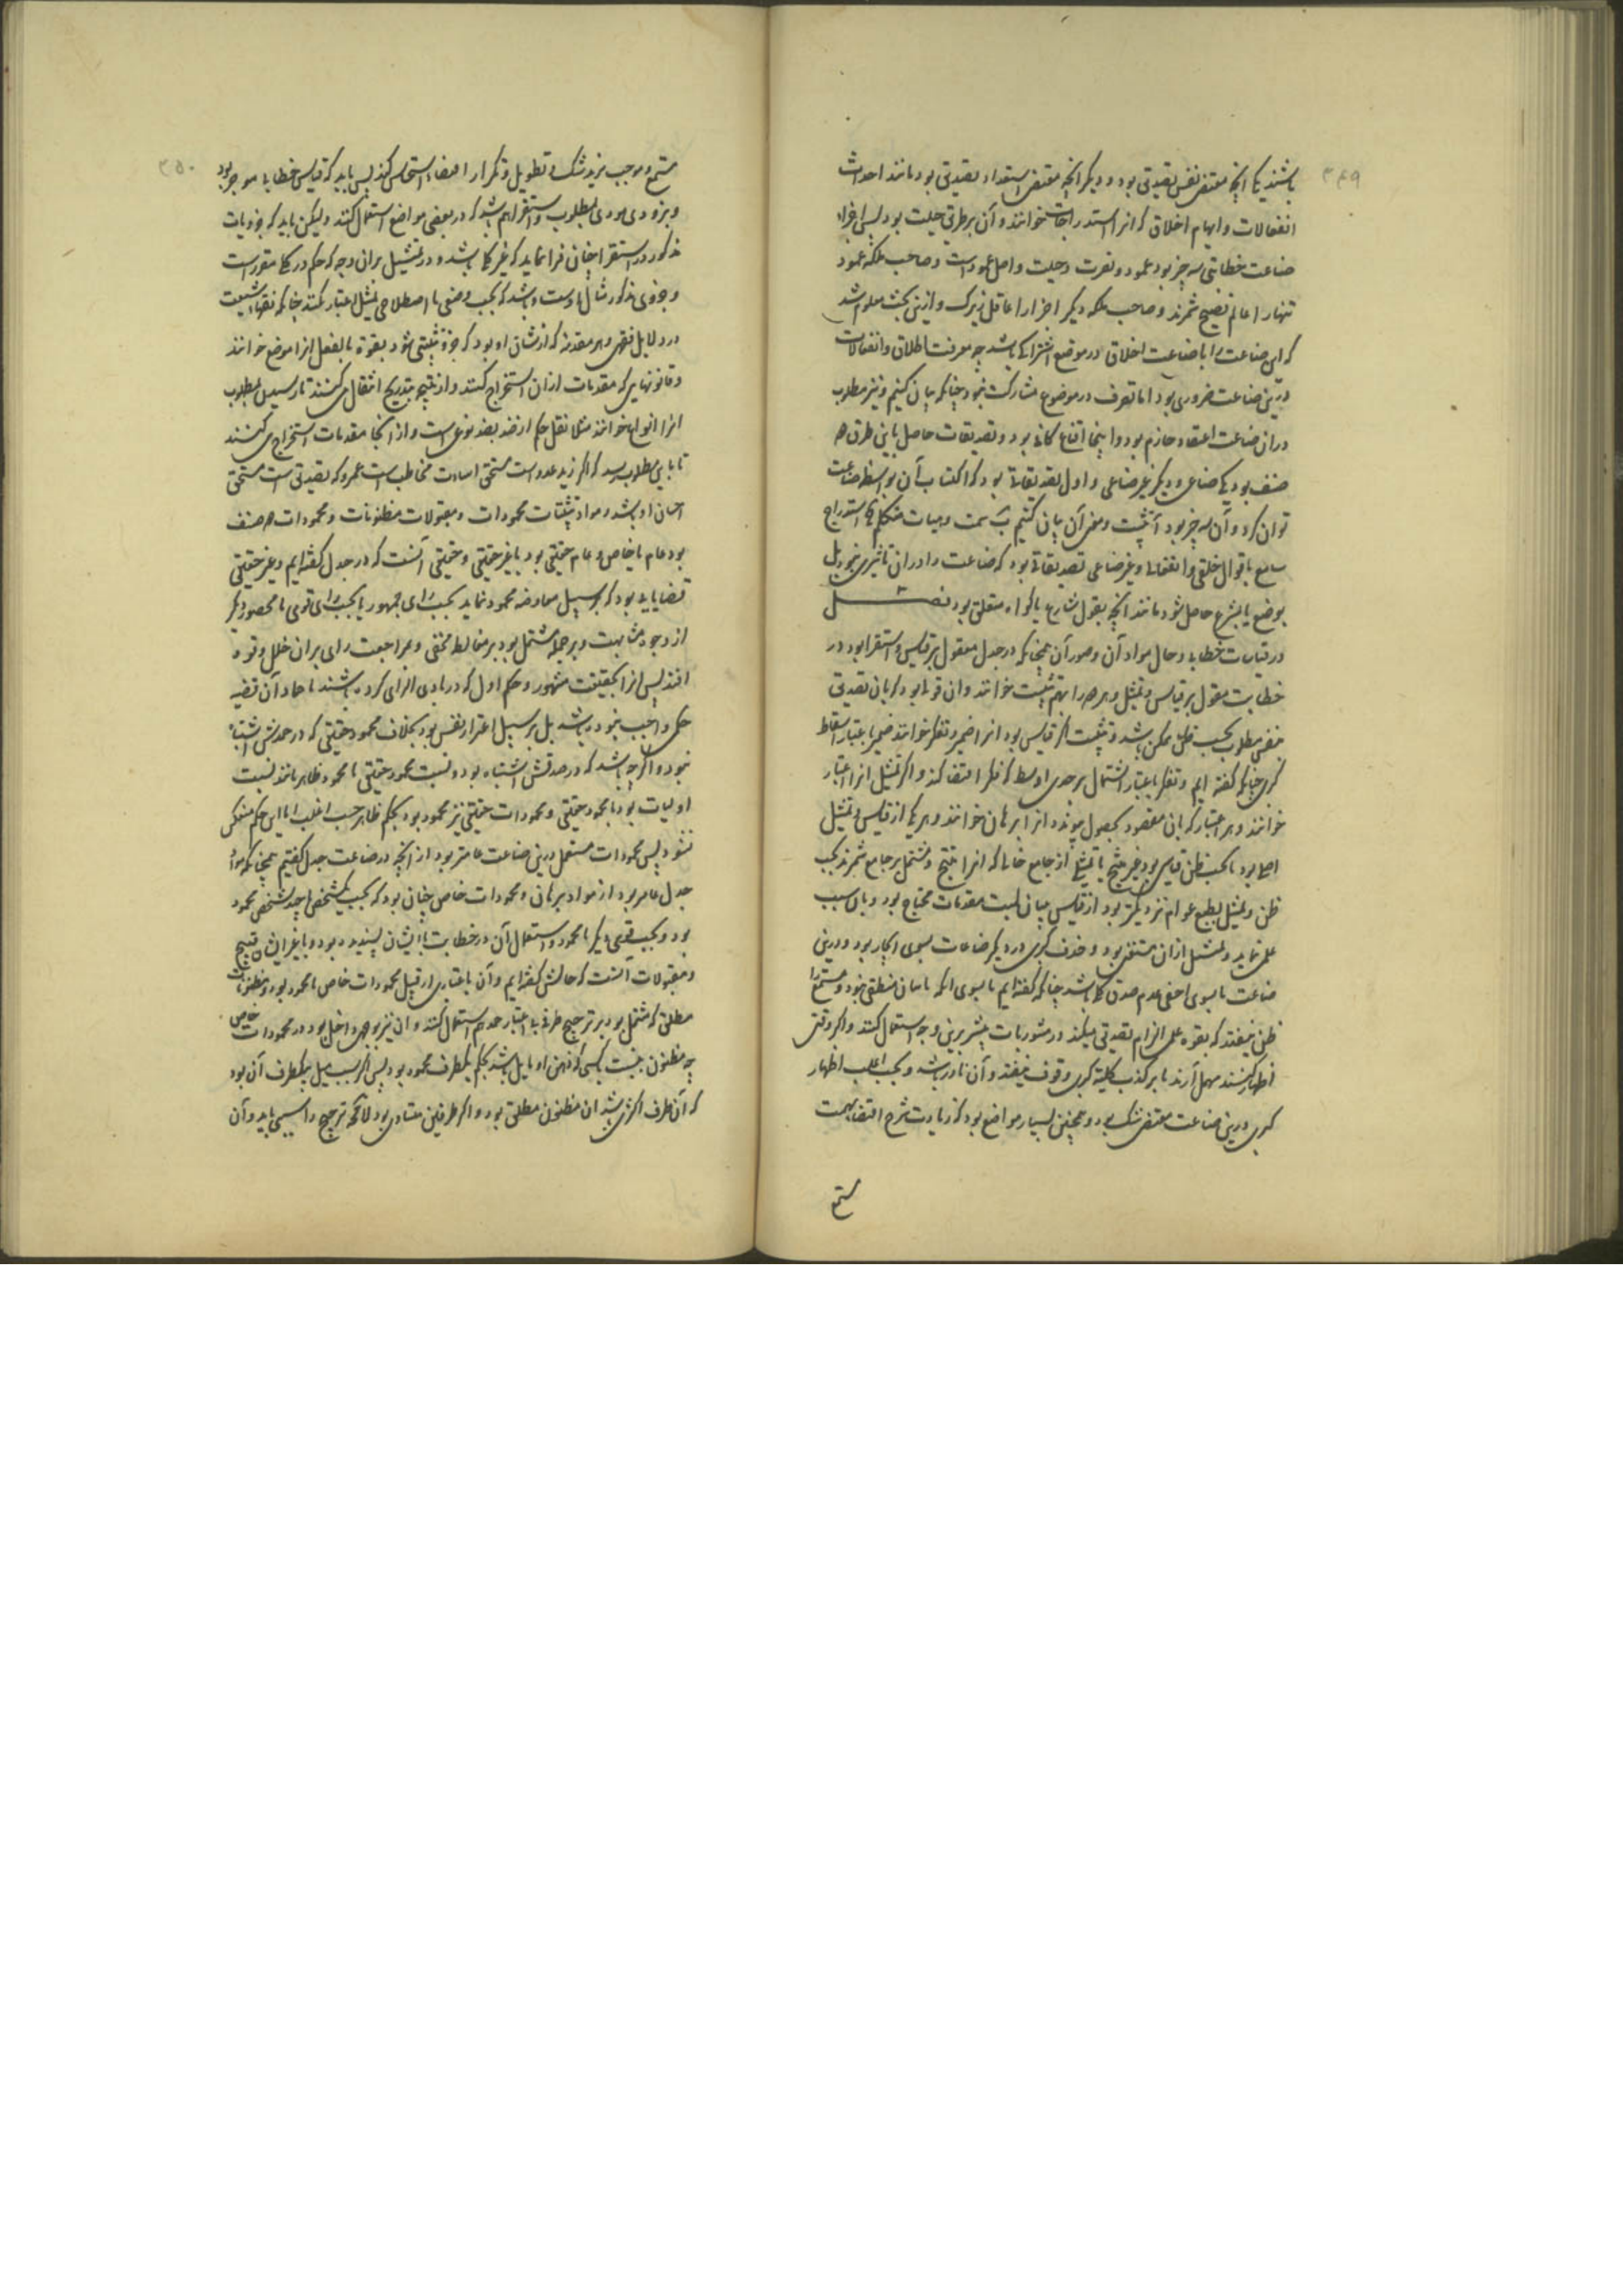 ۳۴۹
باشند یکی آنچه مقتضی نفس تصدیق بود و دیگر آنچه مقتضی استعداد تصدیق بود مانند احداث
انفعالات و ایهام اخلاق که آنرا استدراجات خوانند و آن بر طریق حیلت بود پس اجزاء
صناعت خطابت سه چیز بود عمود و نصرت و حیلت و اصل عمود است و صاحب ملکه عمود
تنها را عالم نصیح شمرند و صاحب ملکه دیگر اجزا را عاقل زیرک و ازین بحث معلوم شد
که این صناعت را با صناعت اخلاق در موضع اشتراکی باشد چه معرفت اخلاق و انفعالات
درین صناعت ضروری بود اما تصرف در موضوع مشارکت نبود چنانکه بیان کنیم و نیز مطلوب
در آن صناعت اعتقاد جازم بود و اینجا اقناع کافی بود و تصدیقات حاصل باین طرق دو
صنف بود یکی صناعی و دیگر غیر صناعی و اول تصدیقاتی بود که اکتساب آن بواسطه صناعت
توان کرد و آن سه چیز بود آ تثبیت و معنی آن بیان کنیم ب سمت و هیأت متکلم ج استدراج
سامع باقوال خلقی و انفعالی و غیر صناعی تصدیقاتی بود که صناعت را در آن تاثیری نبود بل
بوضع یا بشرع حاصل شود مانند آنچه بقول شارع یا گواه متعلق بود فصل
در قیاسات خطابی و حال مواد آن و صور آن همچنانکه در جدل معول بر قیاس و استقرا بود در
خطابت معول بر قیاس و تمثیل و هر دو را بهم تثبیت خوانند و آن قولی بود که بآن تصدیق
نفس مطلوب بحسب ظن ممکن باشد و تثبیت اگر قیاس بود آنرا ضمیر و تفکیر خوانند ضمیر باعتبار اسقاط
کبری چنانکه گفته ایم و تفکیر باعتبار اشتمال بر حدی اوسط که فکر اقتضا کند و اگر تمثیل آنرا اعتبار
خوانند و هر اعتبار که بآن مقصود بحصول پیوندد آنرا برهان خوانند و هر یکی از قیاس و تمثیل
اصلی بود یا بحسب ظن قیاسی بود غیر منتج یا تمثیلی از جامع خالی که آنرا منتج و مشتمل بر جامع شمرند بحسب
ظن و تمثیل بطبع عوام نزدیکتر بود از قیاس بیان لمیت مقدمات محتاج بود و بآن سبب
علمی نماید و تمثیل از آن مستغنی بود و حذف کبری در دیگر صناعات بسوی ایجاز بود و درین
صناعت یا بسوی اخفی عدم صدق کلی باشد چنانکه گفته ایم یا بسوی آنکه تا بیان منطقی نبود و مستمع را
ظن نیفتد که بقوه علمی الزام تصدیق میکند و در مشوریات بیشتر برین وجه استعمال کنند و اگر وقتی
اظهار کنند مهمل آرند تا بر کذب کلیة کبری وقوف نیفتد و آن نادر باشد و بحسب اغلب اظهار
کبری درین صناعت مقتضی شک بود و همچنین بسیار مواضع بود که زیادت شرح اقتضاء تهمت
مستمع
۳۵۰
مستمع و موجب مزید شک و تطویل و تکرار اقتضاء استیحاش کند پس باید که قیاس خطابی موجز بود
و بزودی مودی بمطلوب و استقرا هم باشد که در بعضی مواضع استعمال کنند ولیکن باید که جزویات
مذکور در استقرا چنان فرا نماید که غیر کلی باشد و در تمثیل بران وجه که حکم در کلی مقرر است
و جزوی مذکور مثال اوست و باشد که بحسب وضعی یا اصطلاحی تمثیل اعتبار کنند چنانکه فقها را شبیعت
در دلایل فقهی و هر مقدمه که از شان او بود که جزو تثبیتی شود بقوه یا بفعل آنرا موضع خوانند
و قانونهایی که مقدمات از آن استخراج کنند و از نتیجه بتدریج انتقال می کنند تا رسیدن بمطلوب
آنرا انواع خوانند مثلا نقل حکم از ضد بضد نوعی است و از آنجا مقدمات استخراج می کنند
تا باین مطلوب رسد که اگر زید عدوست مستحق اساءت مخاطب است عمرو که تصدیق است مستحق
احسان او باشد و مواد تثبیتات محمودات و مقبولات و مظنونات و محمودات دو صنف
بود عام یا خاص و عام حقیقی بود یا غیر حقیقی و حقیقی آنست که در جدل گفته ایم و غیر حقیقی
قضایایی بود که بر سبیل معاوضه محمود نماید بحسب رای جمهور یا بحسب رای قومی نا محصور دیگر
از وجوه مشابهت و بر جمله مشتمل بود بر مغالطه مخفی و بمراجعت رای بران خلل وقوف
افتد پس آنرا بحقیقت مشهور و حکم اول که در بادی الرای کرده باشند تا حماد آن قضیه
حکمی واجب نبوده باشد بل بر سبیل اغترار نفس بود بخلاف محمود حقیقی که در حمدش اشتباه
نبود و اگر چه باشد که در صدقش اشتباه بود و نسبت محمود حقیقی با محمود ظاهر مانند نسبت
اولیات بود با محمود حقیقی و محمودات حقیقی نیز محمود بود بحکم ظاهر حسب اغلب اما این حکم منعکس
نشود پس محمودات مستعمل درین صناعت عامتر بود از آنچه در صناعت جدل گفتیم همچنانکه مواد
جدل عامتر بود از مواد برهان و محمودات خاص چنان بود که بحسب یک شخص یا چند شخص محمود
بود و بحسب قومی دیگر نا محمود و استعمال آن در خطابت با ایشان پسندیده بود و با غیر ایشان قبیح
و مقبولات آنست که حالش گفته ایم و آن باعتباری از قبیل محمودات خاص نا محمود بود و مظنونات
مطلق که مشتمل بود بر ترجیح طرفی بی اعتبار حمد هم استعمال کنند و آن نیز بوجهی داخل بود در محمودات خاص
چه مظنون بنسبت با کسی که ذهن او مایل باشد بحکم یک طرف محمود بود پس اگر سبب میل بیک طرف آن بود
که آن طرف اکثری باشد آن مظنون مطلق بود و اگر طرفین متساوی بود لا محاله ترجیح را سببی باید و آن